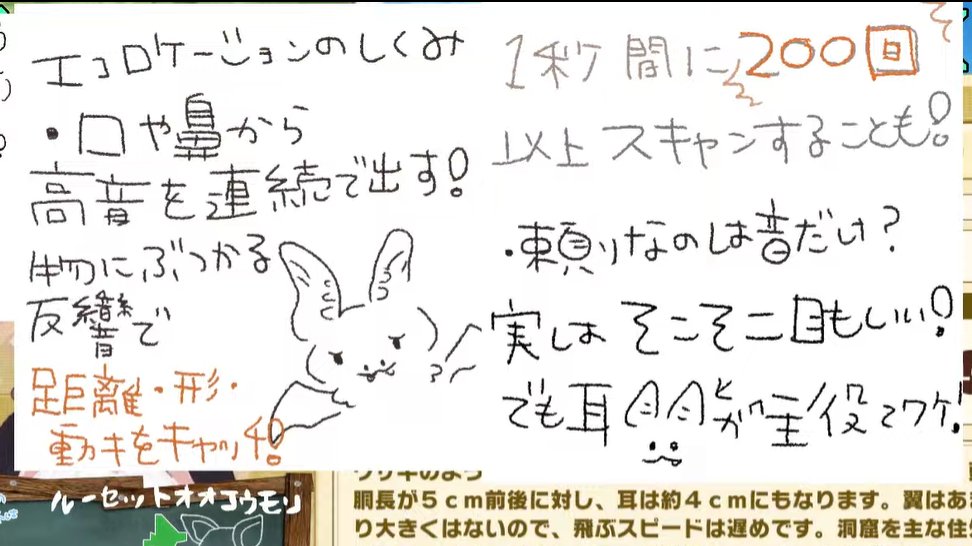 エコロケーションのしくみ
・口や鼻から
高音を連続で出す!
物にぶつかる
反響で
距離・形・
動きをキャッチ!
1秒間に200回
以上スキャンすることも!
・頼りなのは音だけ?
実はそこそこ目もいい!
でも耳が主役てワケ!
ルーセットオオコウモリ
胴長が5cm前後に対し、耳は約4cmにもなります。翼はあ
り大きくはないので、飛ぶスピードは遅めです。洞窟を主な住